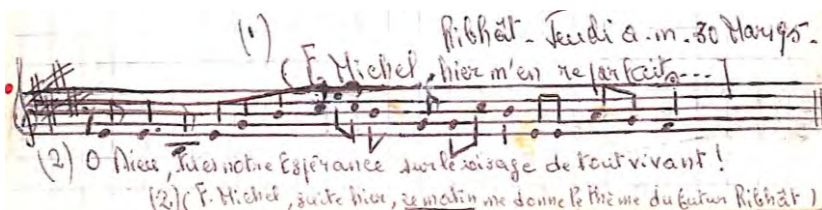 (1) Ribhât - Jeudi a.m. 30 Mars 95.
(F. Michel, hier m'en reparlait...)
(2) O Dieu, Tu es notre Espérance sur le visage de tout vivant !
(2) (F. Michel, suite hier, ce matin me donne le thème du futur Ribhât)